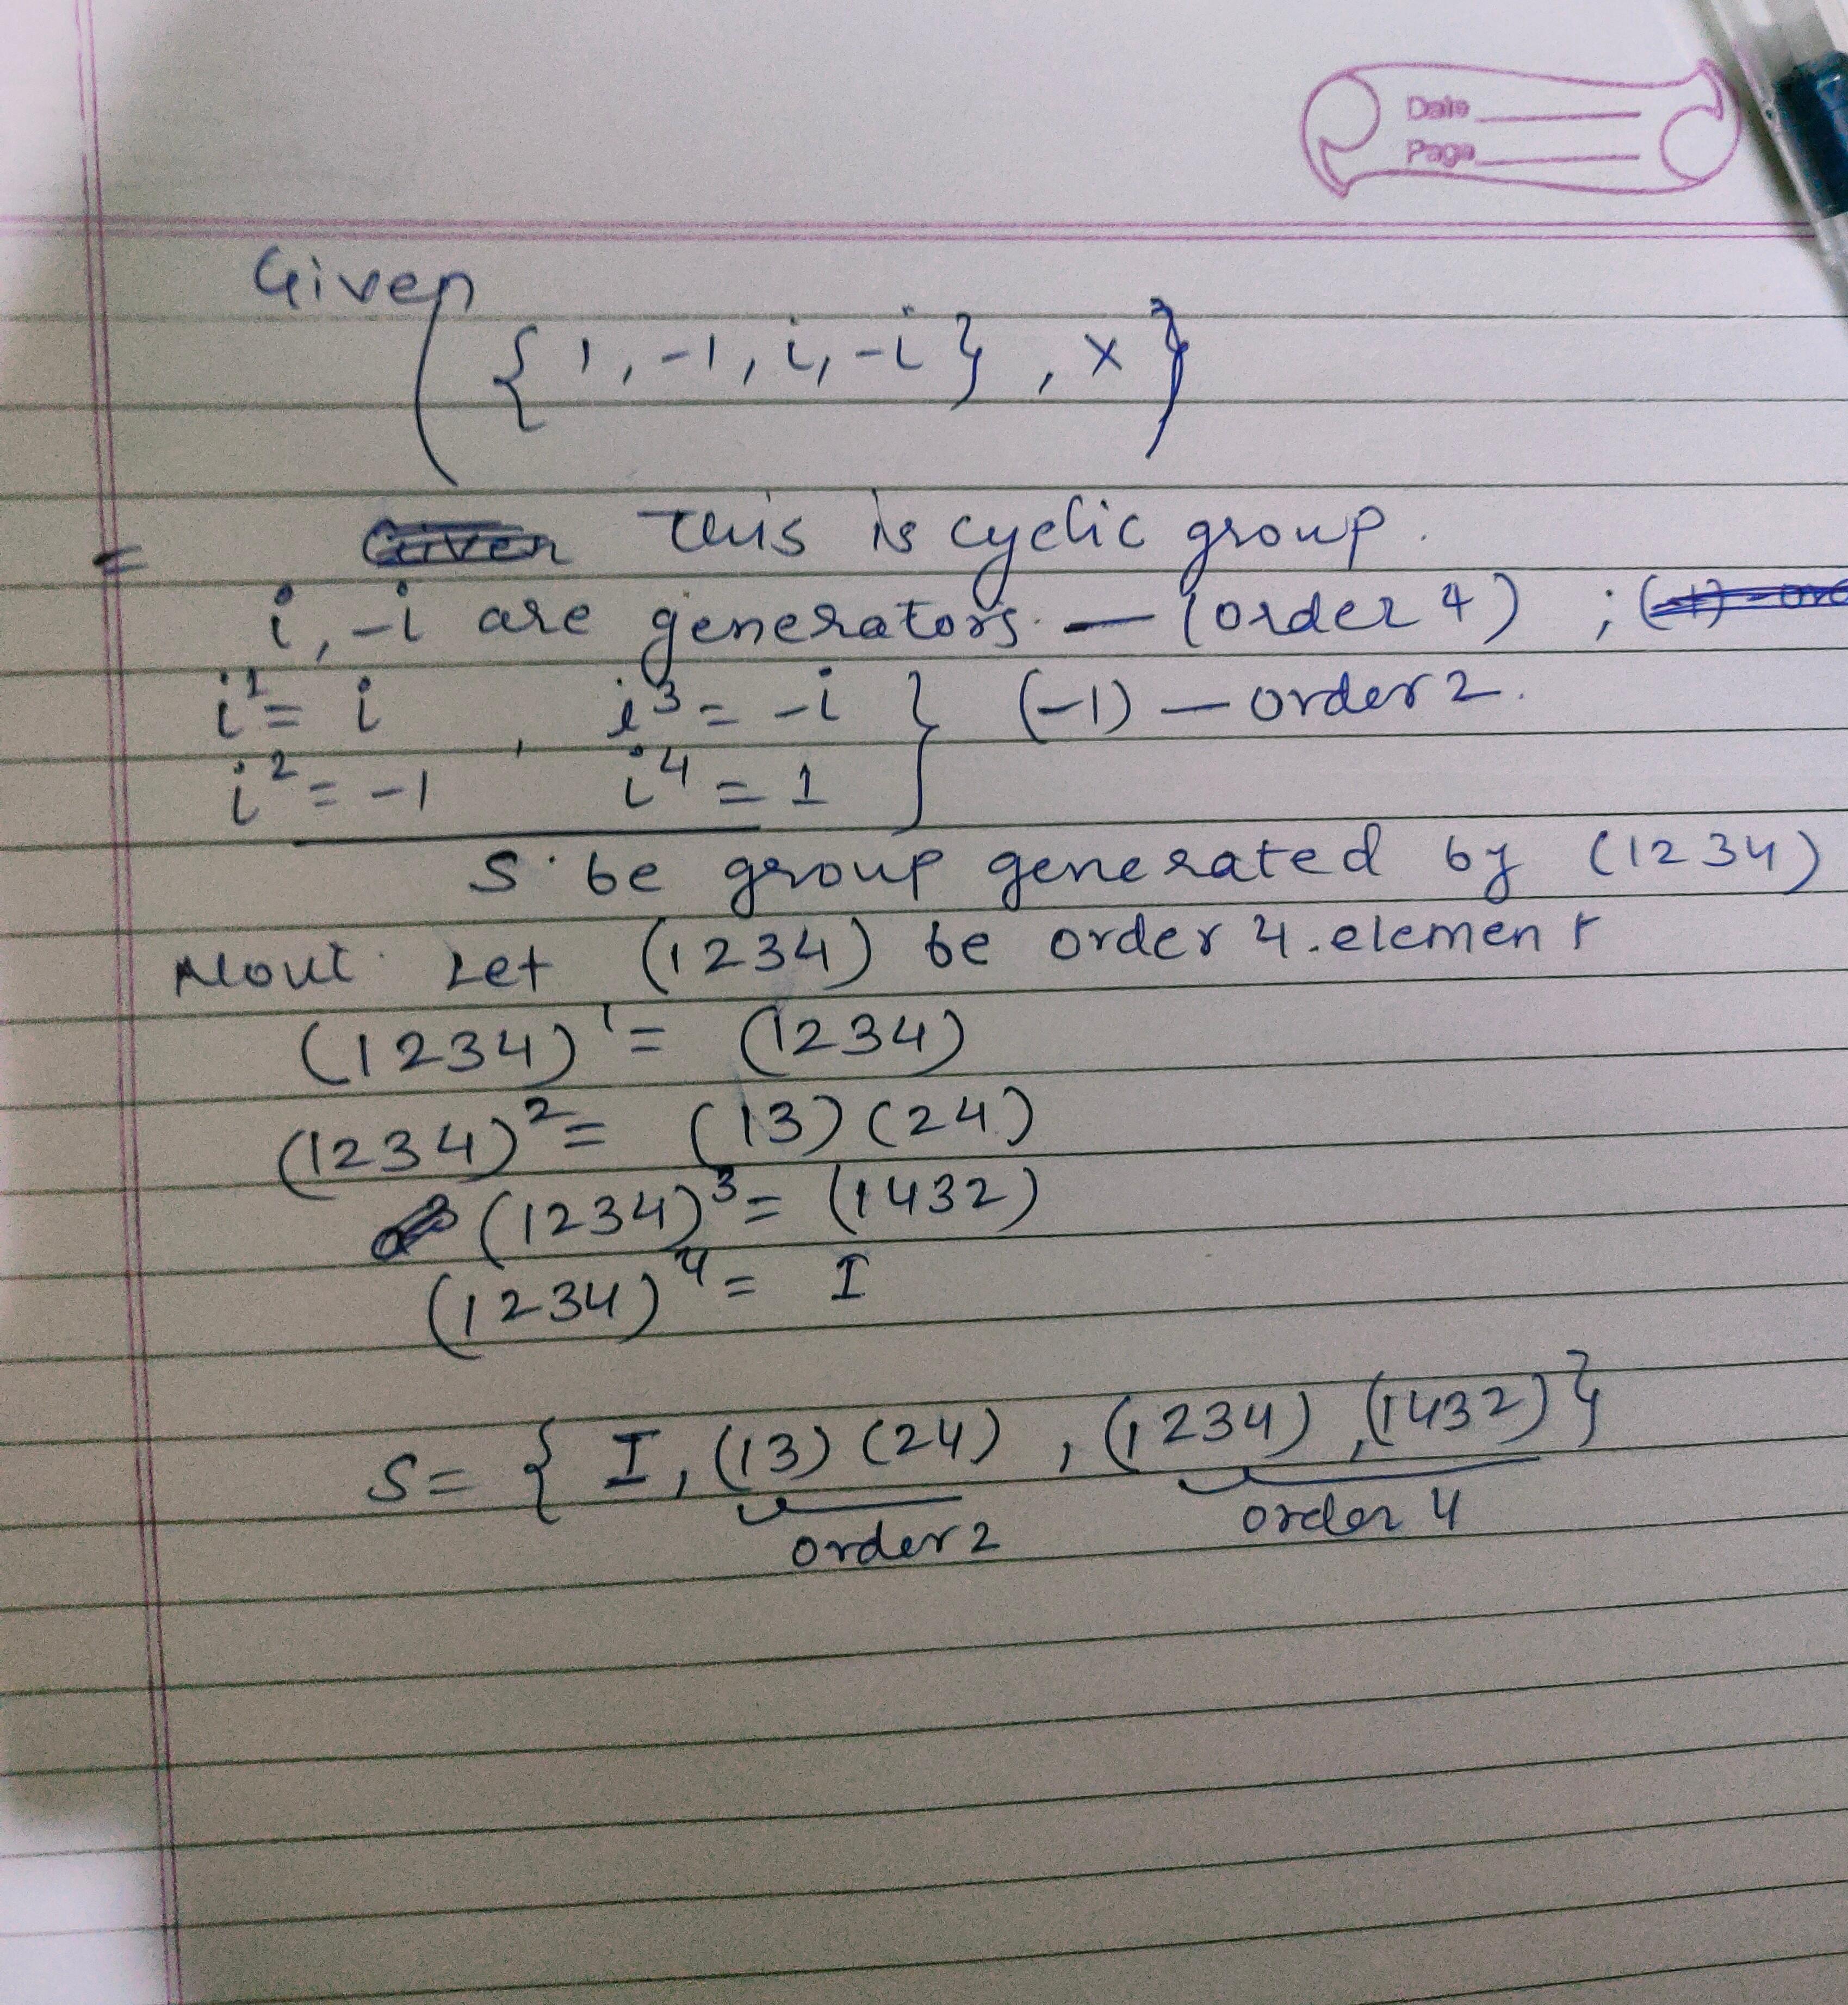 Date
Page
Given
( { 1, -1, i, -i } , × )
This is cyclic group.
i, -i are generators. — (order 4) ;
i¹ = i , i³ = -i } (-1) — order 2.
i² = -1 i⁴ = 1
S be group generated by (1234)
Let (1234) be order 4. element
(1234)¹ = (1234)
(1234)² = (13)(24)
(1234)³ = (1432)
(1234)⁴ = I
S = { I, (13)(24) , (1234) , (1432) }
order 2 order 4